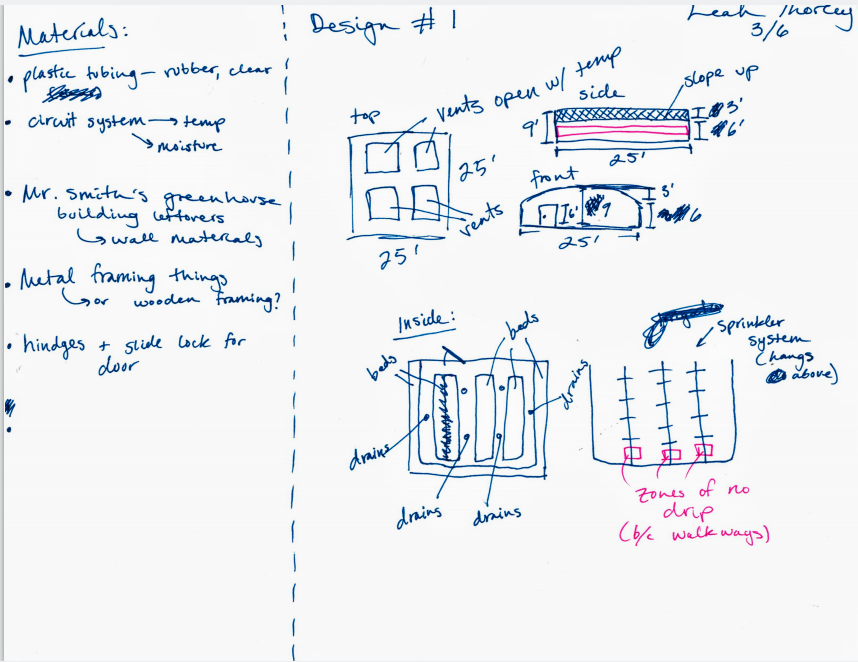 Materials:
• plastic tubing — rubber, clear
• circuit system → temp
↘ moisture
• Mr. Smith's greenhouse
building leftovers
↳ wall materials
• Metal framing things
↳ or wooden framing?
• hindges + slide lock for
door
•
Design # 1
Leah Thorley
3/6
top
vents open w/ temp
25'
vents
25'
side
slope up
9'
3'
6'
25'
front
3'
6'
9
6
25'
Inside:
beds
beds
drains
drains
drains
drains
sprinkler
system
(hangs
above)
zones of no
drip
(b/c walkways)